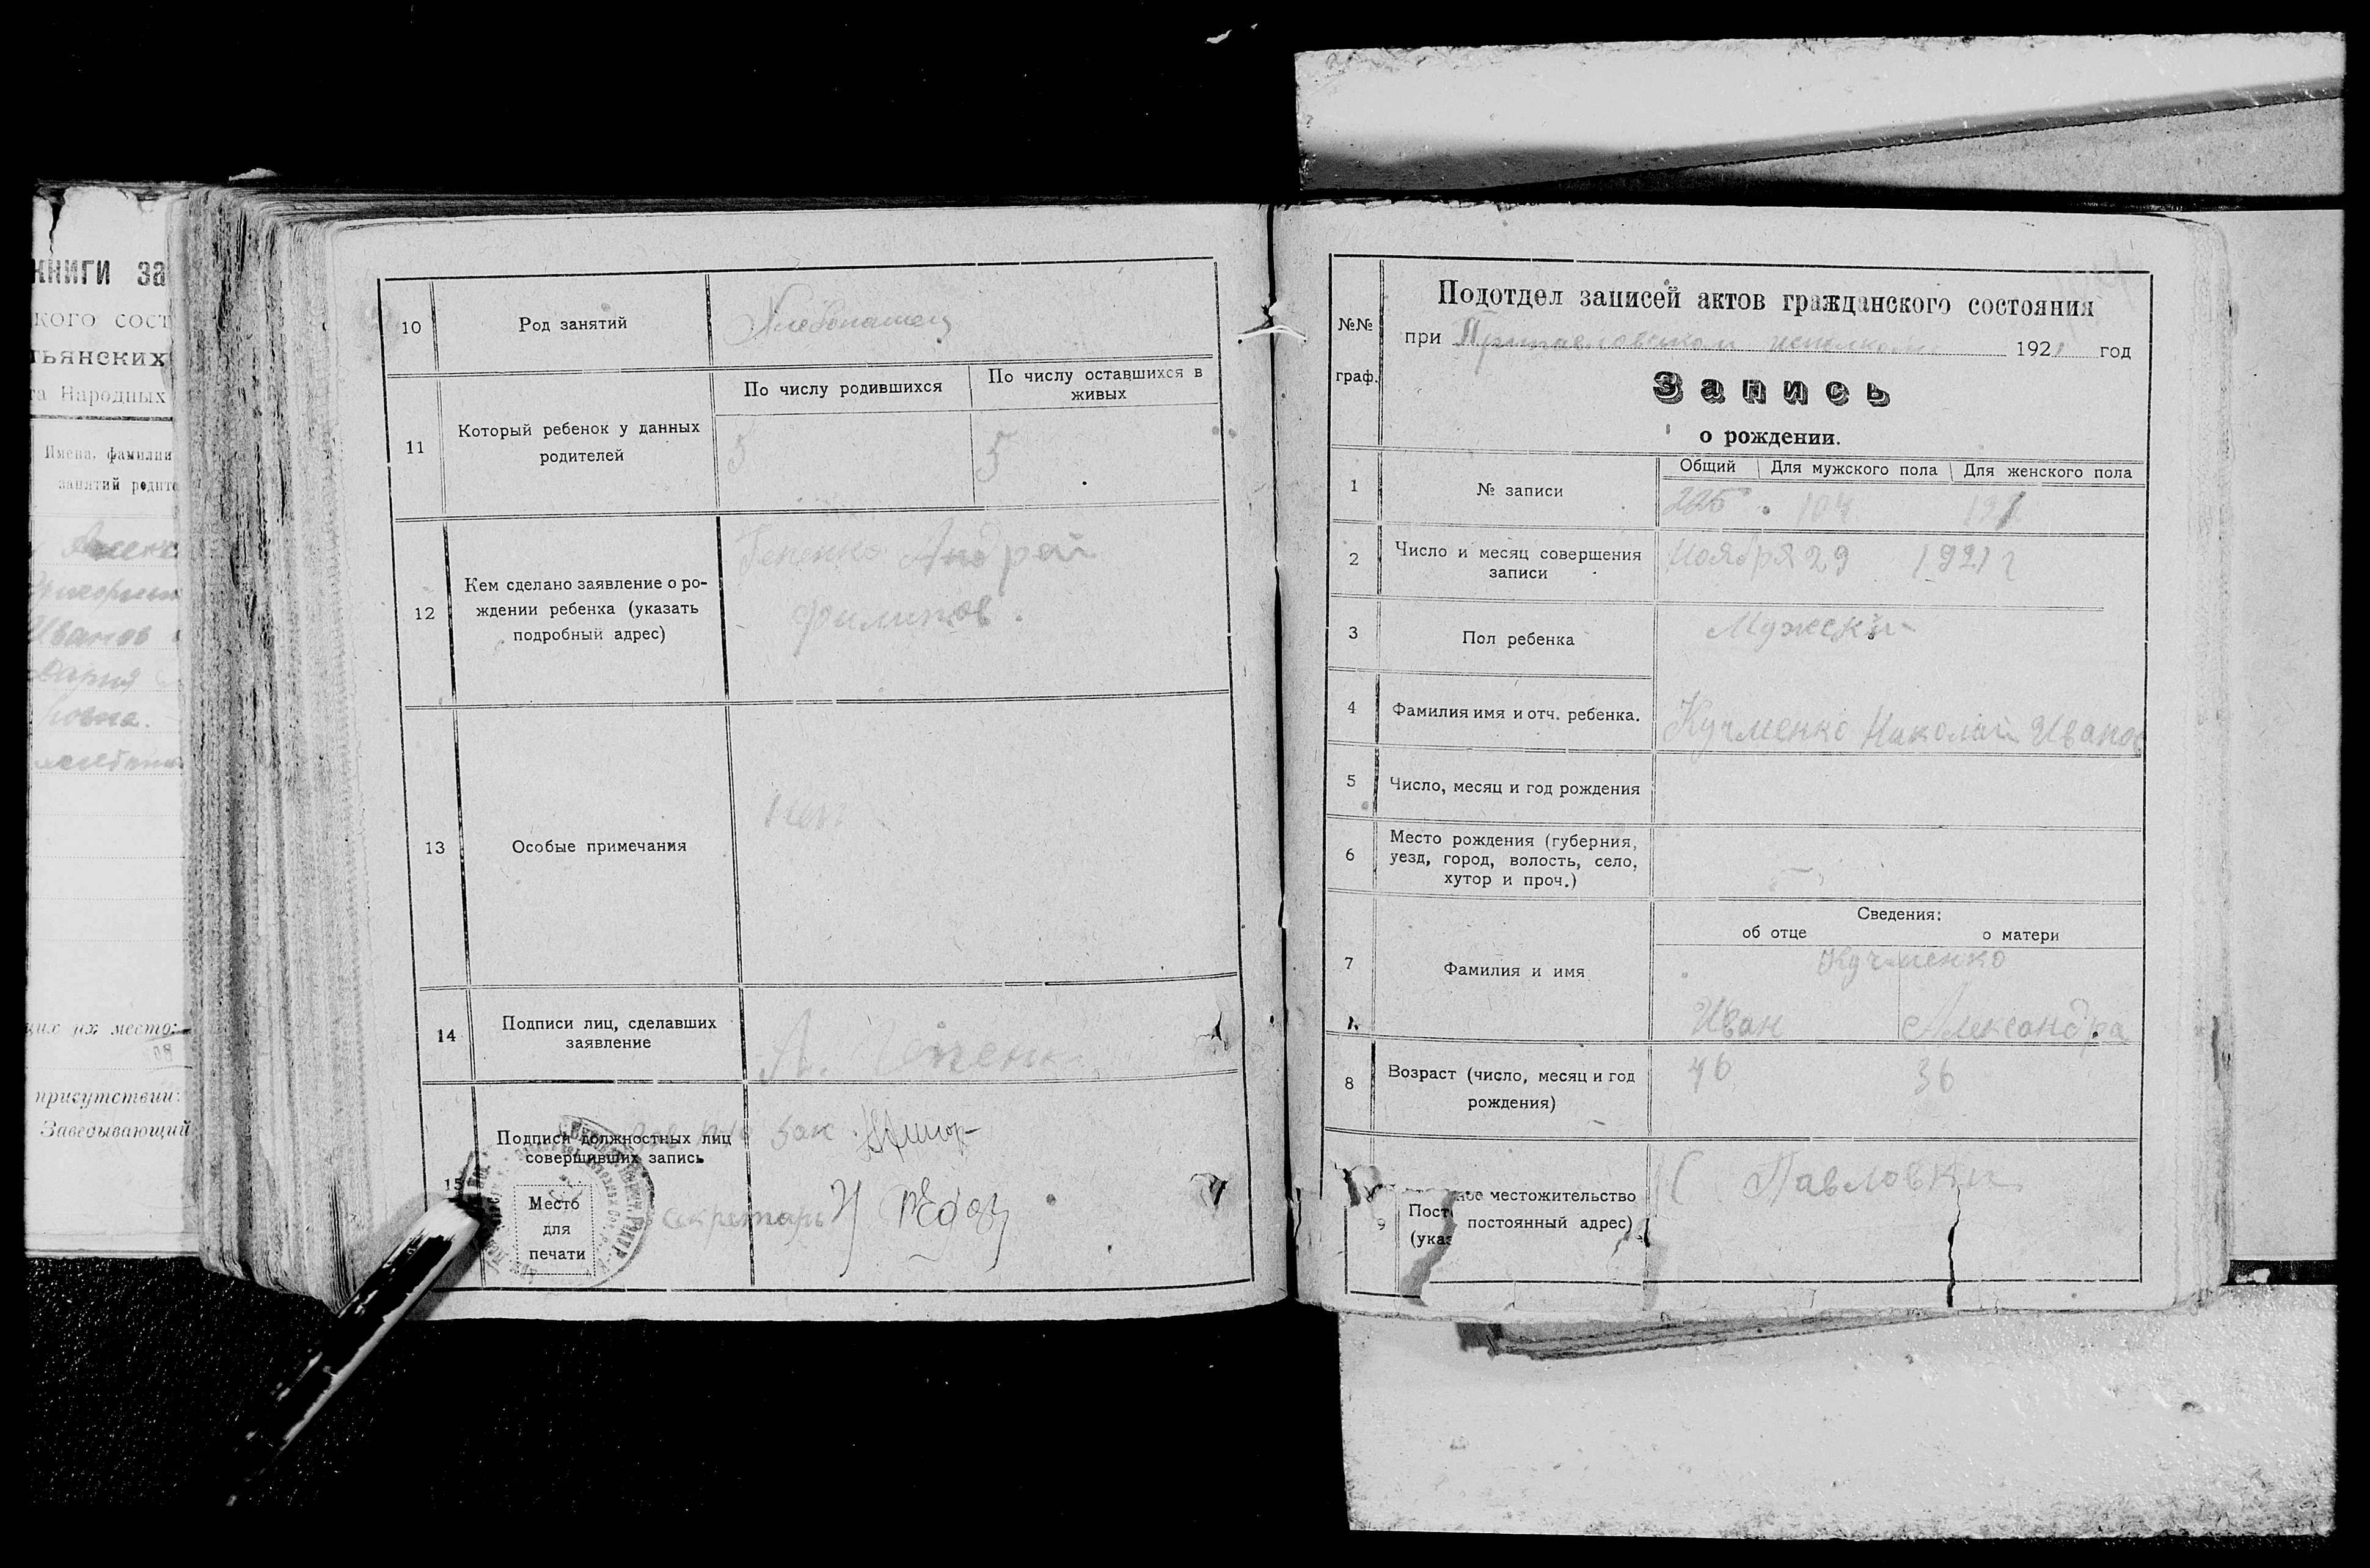 книги за
кого сост
тьянских
та Народных
Имена, фамилии
занятий родите
Иванов
Дария
их место:
присутствии:
Заведывающий
10
Род занятий
Хлебопашец
11
Который ребенок у данных
родителей
По числу родившихся
По числу оставшихся в
живых
5
5
12
Кем сделано заявление о ро-
ждении ребенка (указать
подробный адрес)
Андрей
Филипов.
13
Особые примечания
Нет
14
Подписи лиц, сделавших
заявление
А.
15
Подписи должностных лиц
совершивших запись
Зак
Место
для
печати
секретарь
№№
граф.
Подотдел записей актов гражданского состояния
при исполкоме 1921 год
Запись
о рождении.
1
№ записи
Общий
Для мужского пола
Для женского пола
225
104
121
2
Число и месяц совершения
записи
Ноября 29 1921 г
3
Пол ребенка
Мужеский
4
Фамилия имя и отч. ребенка.
Кучменко Николай Иванов
5
Число, месяц и год рождения
6
Место рождения (губерния,
уезд, город, волость, село,
хутор и проч.)
7
Фамилия и имя
Сведения:
об отце
о матери
Кучменко
Иван
Александра
8
Возраст (число, месяц и год
рождения)
46
36
9
Пост ное местожительство
(указ постоянный адрес)
С Павловки